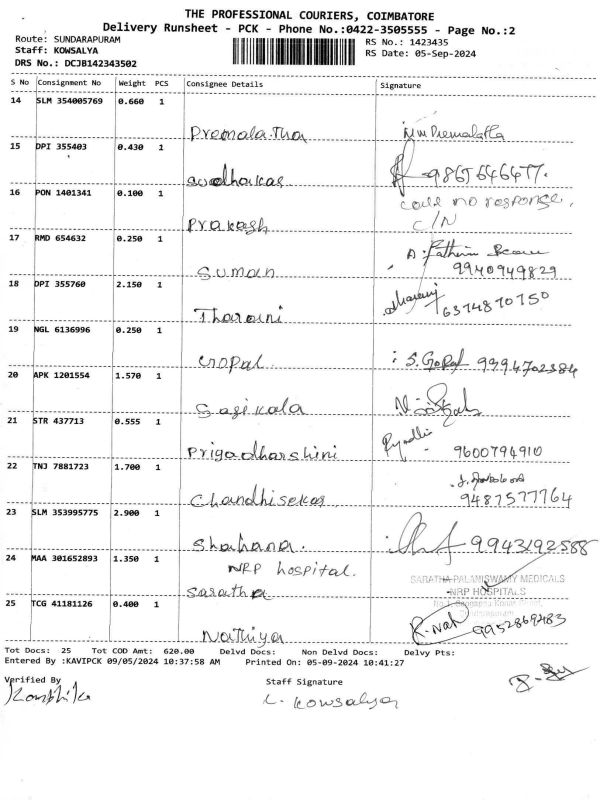 THE PROFESSIONAL COURIERS, COIMBATORE
Delivery Runsheet - PCK - Phone No.:0422-3505555 - Page No.:2
Route: SUNDARAPURAM
RS No.: 1423435
Staff: KOWSALYA
RS Date: 05-Sep-2024
DRS No.: DCJB142343502
S No Consignment No Weight PCS Consignee Details Signature
14 SLM 354005769 0.660 1
Premalatha
15 DPI 355403 0.430 1
Sudhakar 9865646477.
16 PON 1401341 0.100 1
call no response,
Prakash C/N
17 RMD 654632 0.250 1
Suman 9940949829
18 DPI 355760 2.150 1
Tharani dharani 6374870750
19 NGL 6136996 0.250 1
Gopal : S. Gopal 9994702384
20 APK 1201554 1.570 1
Sasikala
21 STR 437713 0.555 1
Priyadharshini 9600794910
22 TNJ 7881723 1.700 1
Chandhisekar 9487577764
23 SLM 353995775 2.900 1
Shahana. 9943192588
24 MAA 301652893 1.350 1
NRP hospital.
SARATHA PALANISWAMY MEDICALS
NRP HOSPITALS
Saratha
25 TCG 41181126 0.400 1
Nathiya 9952869483
Tot Docs: 25 Tot COD Amt: 620.00 Delvd Docs: Non Delvd Docs: Delvy Pts:
Entered By :KAVIPCK 09/05/2024 10:37:58 AM Printed On: 05-09-2024 10:41:27
Verified By Staff Signature
L. Kowsalya